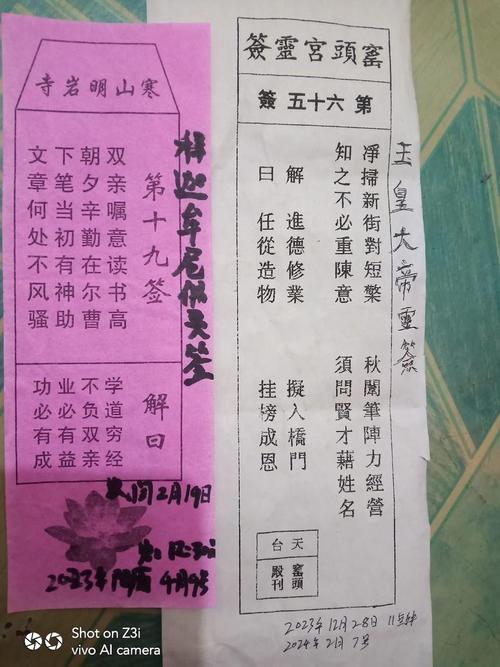 寒山明岩寺
第十九签
双亲嘱意读书高
朝夕辛勤在尔曹
下笔当初有神助
文章何处不风骚
解曰
学道穷经
不负双亲
业必有益
功必有成
释迦牟尼佛灵签
2月19日
2023年
4月9号
窰頭宮靈簽
第六十五簽
淨掃新街對短檠
秋闈筆陣力經營
知之不必重陳意
須問賢才藉姓名
解曰
進德修業
擬入橋門
任從造物
挂榜成恩
天台
窰頭殿刊
玉皇大帝靈簽
2023年12月28日 11点钟
2024年2月7号
Shot on Z3i
vivo AI camera